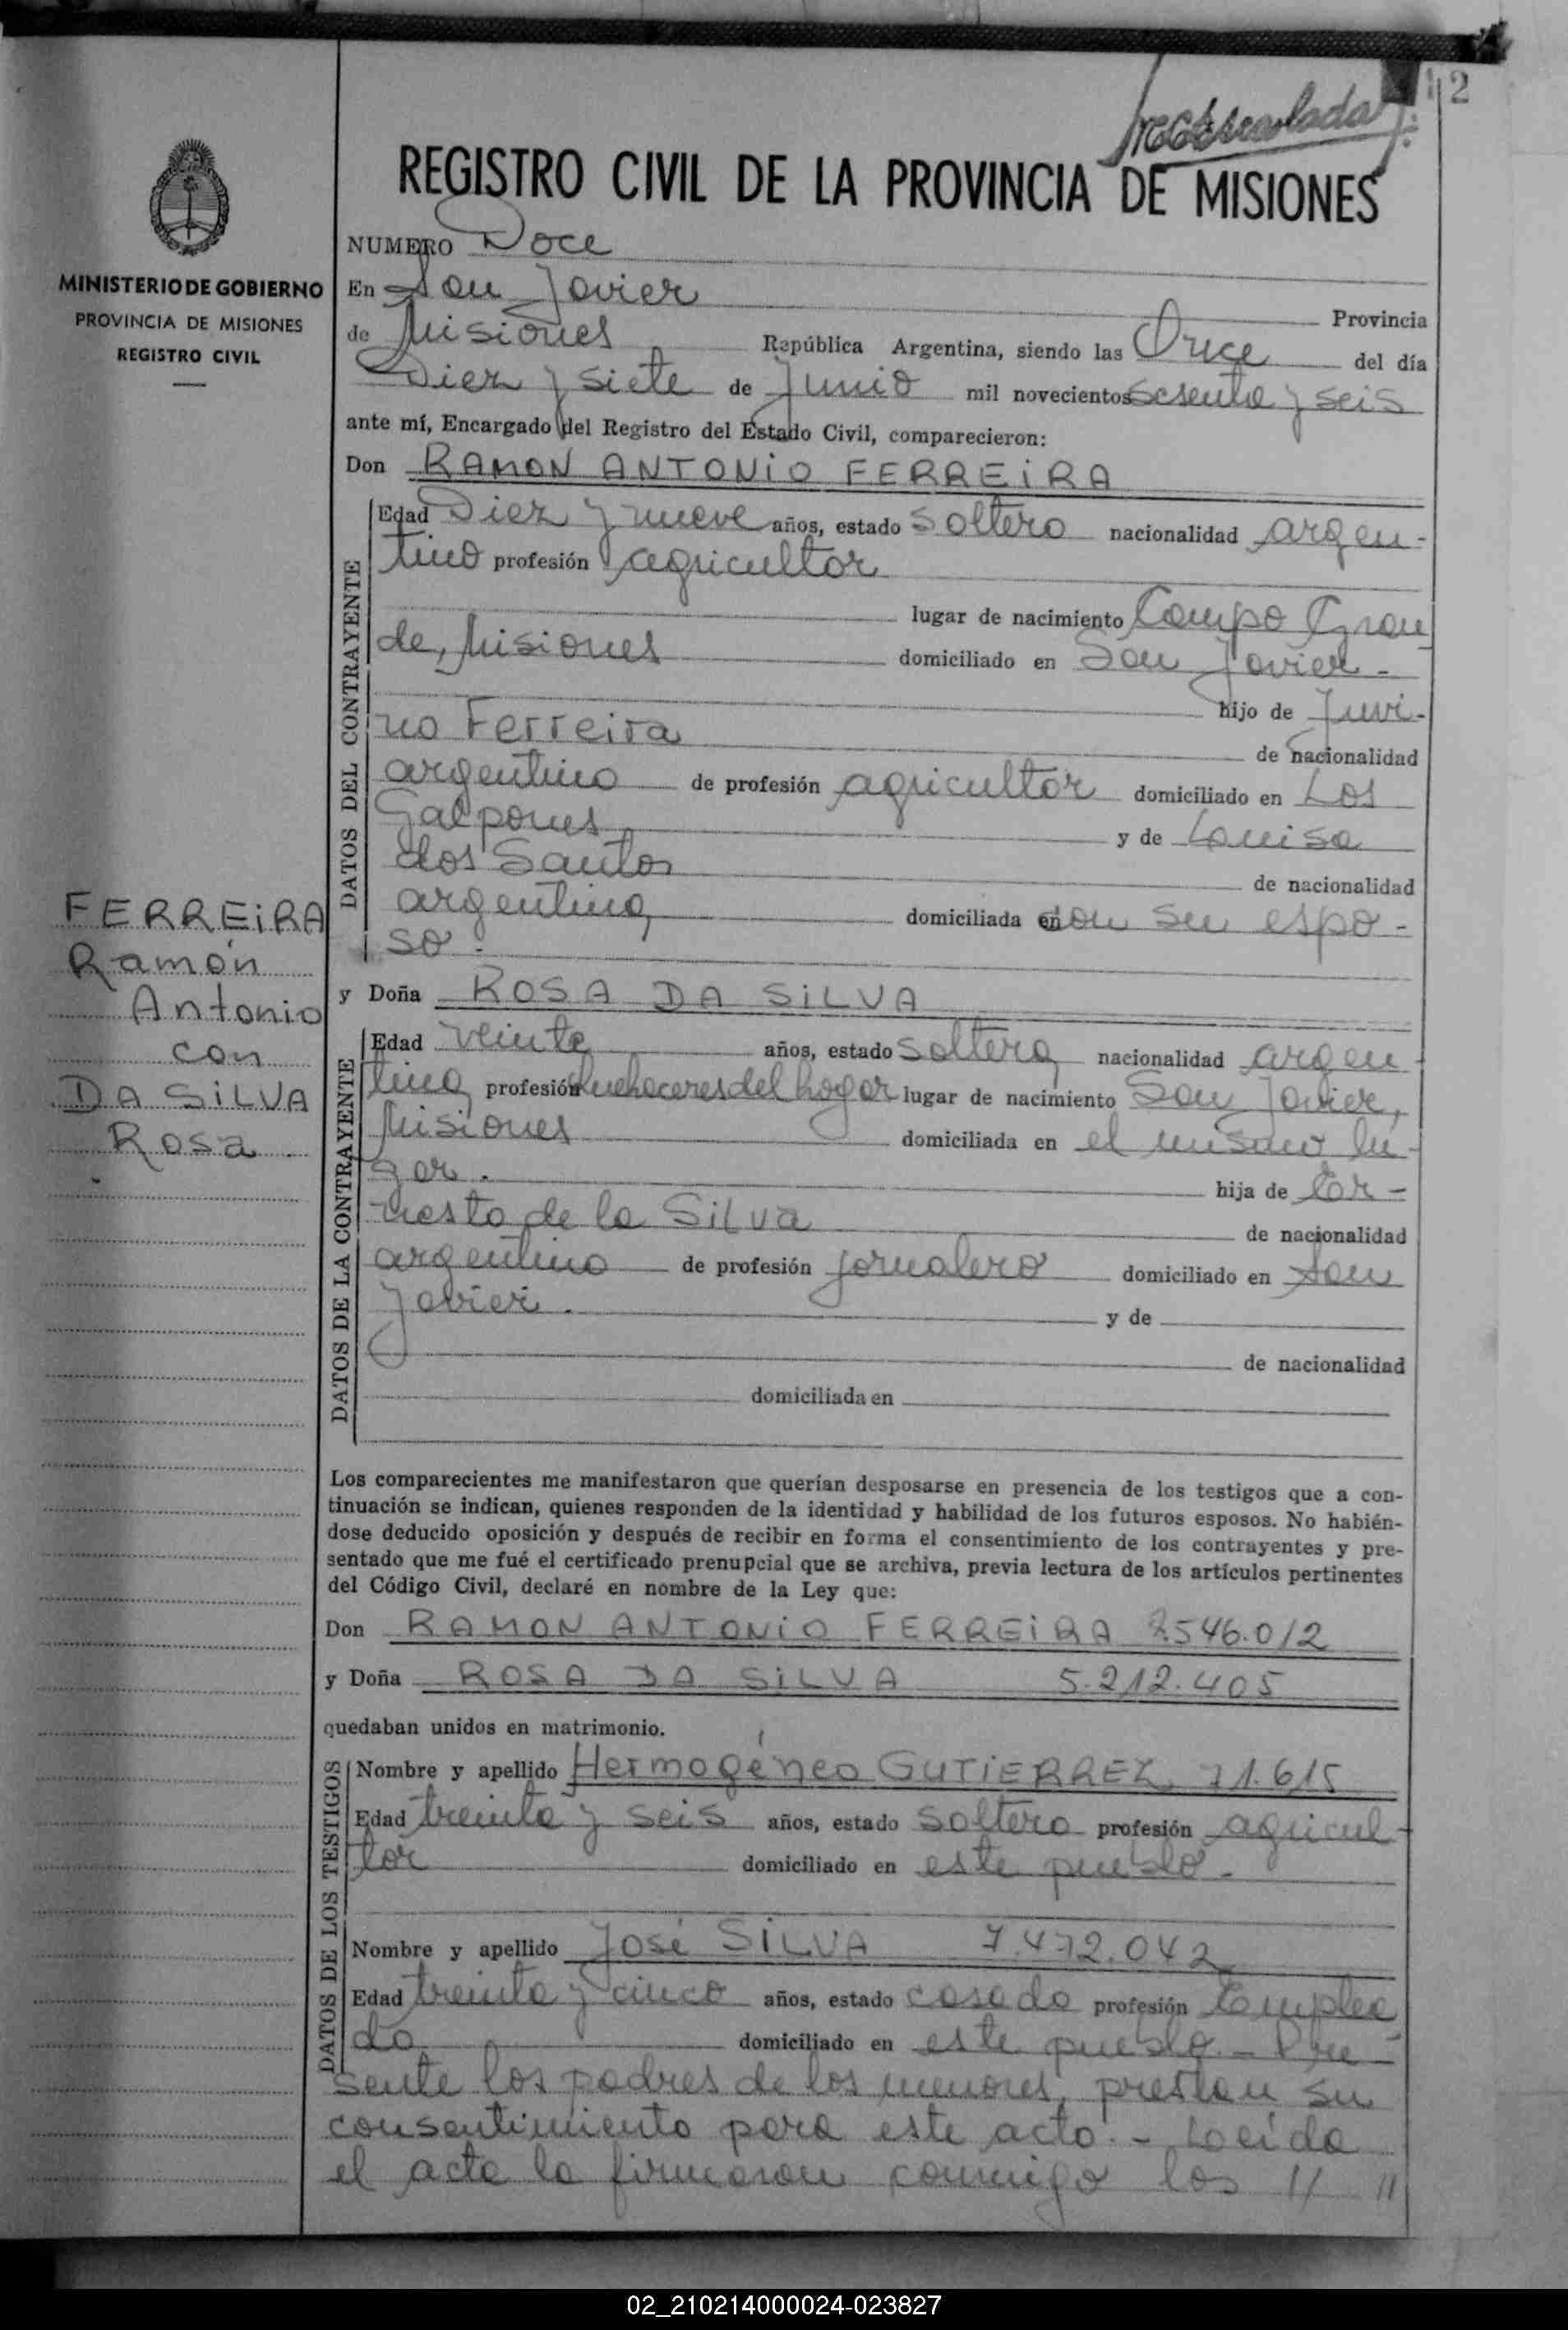 12
REGISTRO CIVIL DE LA PROVINCIA DE MISIONES
MINISTERIO DE GOBIERNO
PROVINCIA DE MISIONES
REGISTRO CIVIL
NUMERO Doce
En San Javier
Provincia
de Misiones República Argentina, siendo las Once del día
Diez y siete de Junio mil novecientos sesenta y seis
ante mí, Encargado del Registro del Estado Civil, comparecieron:
Don RAMON ANTONIO FERREIRA
DATOS DEL CONTRAYENTE
Edad Diez y nueve años, estado Soltero nacionalidad argen-
tino profesión agricultor
lugar de nacimiento Campo Gran
de, Misiones domiciliado en San Javier.-
hijo de Juvi-
no Ferreira
de nacionalidad
argentino de profesión agricultor domiciliado en Los
Galpones y de Louisa
dos Santos
de nacionalidad
argentina, domiciliada en con su espo-
so.
FERREIRA
Ramón
Antonio
con
DA SILVA
Rosa
y Doña ROSA DA SILVA
DATOS DE LA CONTRAYENTE
Edad veinte años, estado Soltera, nacionalidad argen-
tina, profesión Quehaceres del hogar lugar de nacimiento San Javier,
Misiones domiciliada en el mismo lu-
gar.
hija de Er-
nesto de la Silva
de nacionalidad
argentino de profesión jornalero domiciliado en San
Javier.
y de
de nacionalidad
domiciliada en
Los comparecientes me manifestaron que querían desposarse en presencia de los testigos que a con-
tinuación se indican, quienes responden de la identidad y habilidad de los futuros esposos. No habién-
dose deducido oposición y después de recibir en forma el consentimiento de los contrayentes y pre-
sentado que me fué el certificado prenupcial que se archiva, previa lectura de los artículos pertinentes
del Código Civil, declaré en nombre de la Ley que:
Don RAMON ANTONIO FERREIRA 7.546.012
y Doña ROSA DA SILVA 5.212.405
quedaban unidos en matrimonio.
DATOS DE LOS TESTIGOS
Nombre y apellido Hermogéneo GUTIERREZ 71.615
Edad treinta y seis años, estado soltero profesión agricul-
tor domiciliado en este pueblo.-
Nombre y apellido José SILVA 7.472.042
Edad treinta y cinco años, estado casado profesión Emplea
do domiciliado en este pueblo.- Pre-
sente los padres de los menores, prestan su
consentimiento para este acto.- Leída
el acta la firmaron conmigo los // //
02_210214000024-023827